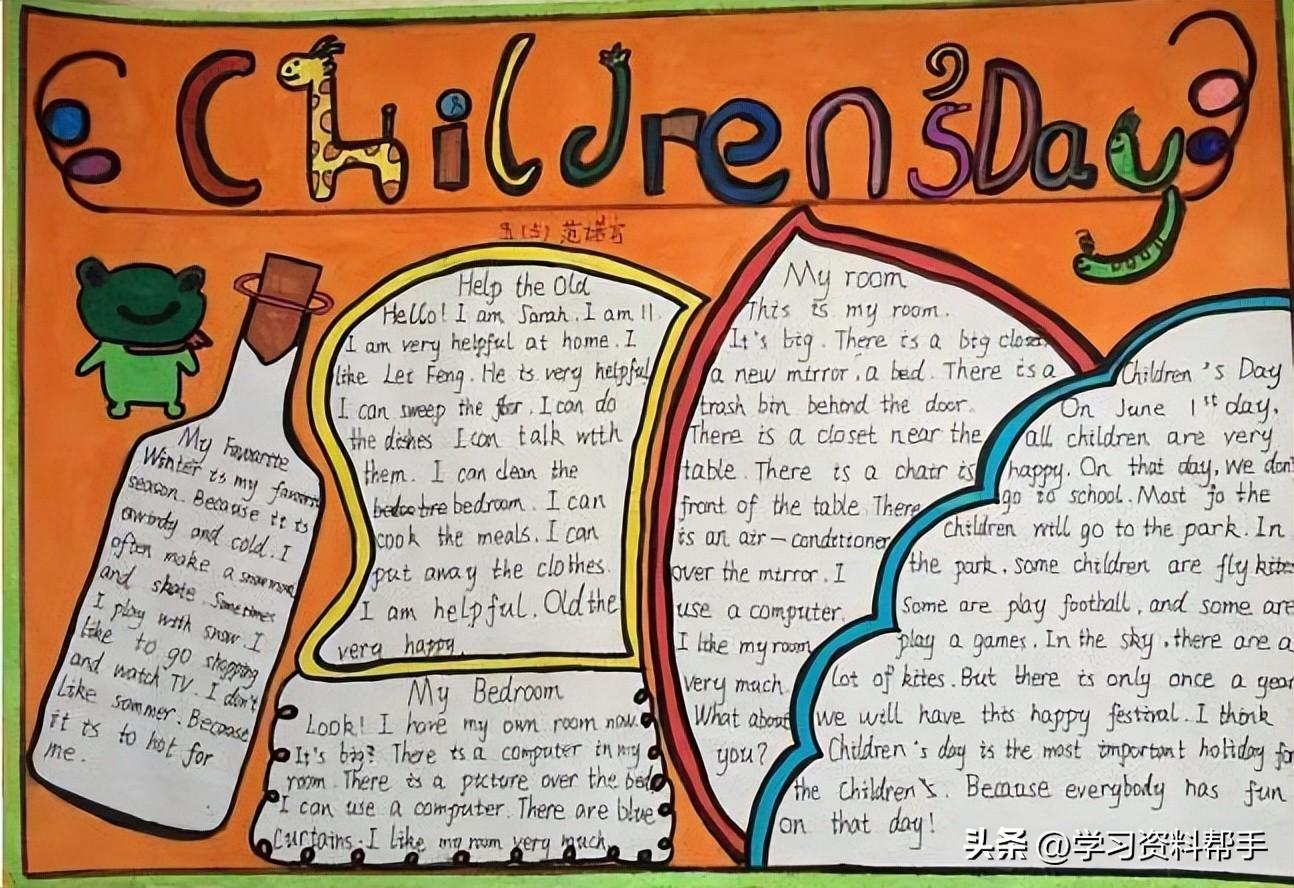 Children's Day
五(5) 范诺言
My Favourite
Winter is my favourite
season. Because it is
windy and cold. I
often make a snowman
and skate. Sometimes
I play with snow. I
like to go shopping
and watch TV. I don't
like sommer. Because
it is to hot for
me.
Help the Old
Hello! I am Sarah. I am 11.
I am very helpful at home. I
like Lei Feng. He is very helpful
I can sweep the floor. I can do
the dishes I can talk with
them. I can clean the
bedroom. I can
cook the meals. I can
put away the clothes.
I am helpful. Old the
very happy.
My Bedroom
Look! I have my own room now.
It's big? There is a computer in my
room. There is a picture over the bed
I can use a computer. There are blue
curtains. I like my room very much.
My room
This is my room.
It's big. There is a big closet
a new mirror, a bed. There is a
trash bin behind the door.
There is a closet near the
table. There is a chair is
front of the table. There
is an air-conditioner
over the mirror. I
use a computer.
I like my room
very much.
What about
you?
Children's Day
On June 1st day,
all children are very
happy. On that day, we don't
go to school. Most jo the
children will go to the park. In
the park, some children are fly kites
Some are play football, and some are
play a games. In the sky, there are a
lot of kites. But there is only once a year
we will have this happy festival. I think
Children's day is the most important holiday for
the children. Because everybody has fun
on that day!
头条 @学习资料帮手